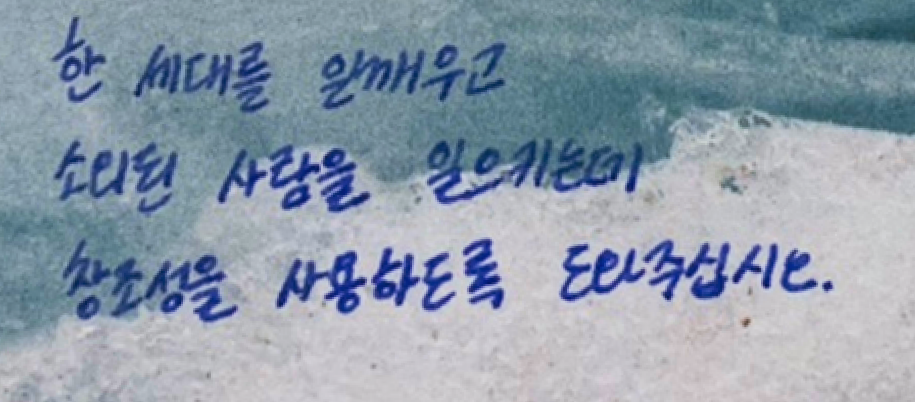 한 세대를 일깨우고
소외된 사람을 일으키는데
창조성을 사용하도록 도와주십시오.